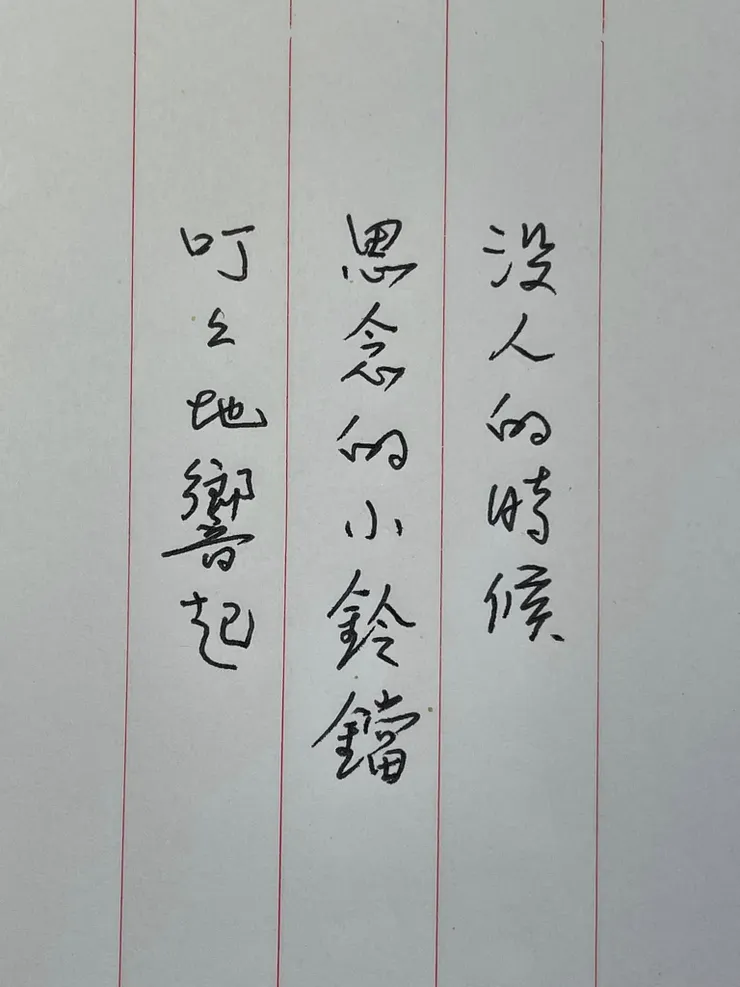 没人的時候
思念的小鈴鐺
叮々地響起